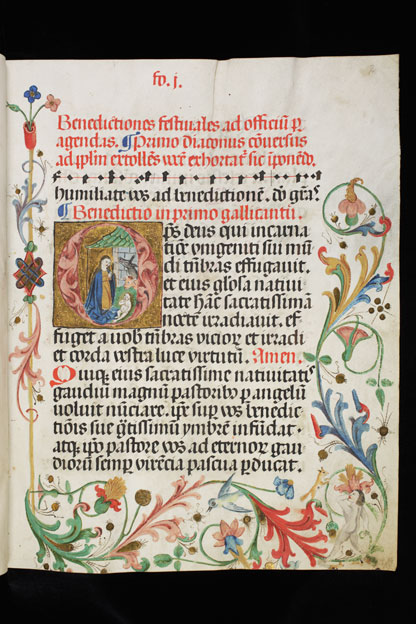 fo. j.
Benedictiones festiuales ad officiũ p̱
agendas. ¶ Primo diaconus cõuersus
ad ppłm extollẽs
humiliate vos ad benedictionẽ. dõ grãs
¶ Benedictio in primo gallicantu.
ps deus qui incarna
vnigeniti sui mũ
di tñbras effugauit.
et eius glõsa natiui
tate hãc sacratissimã
nocte irradiauit. ef
fuget a uob tñbras vicioꝝ et irradi
et corda vestra luce virtutũ. Amen.
Quiqꝫ eius sacratissime natiuitatꝭ
gaudiũ magnũ pastoribꝫ p angelũ
uoluit nũciare. ipẽ sup vos benedic
tiõis sue gͥtissimũ ymbrẽ infũdat.
atqꝫ ipõ pastore vos ad eternoꝝ gau
dioruȝ semp virẽcia pascua pducat.